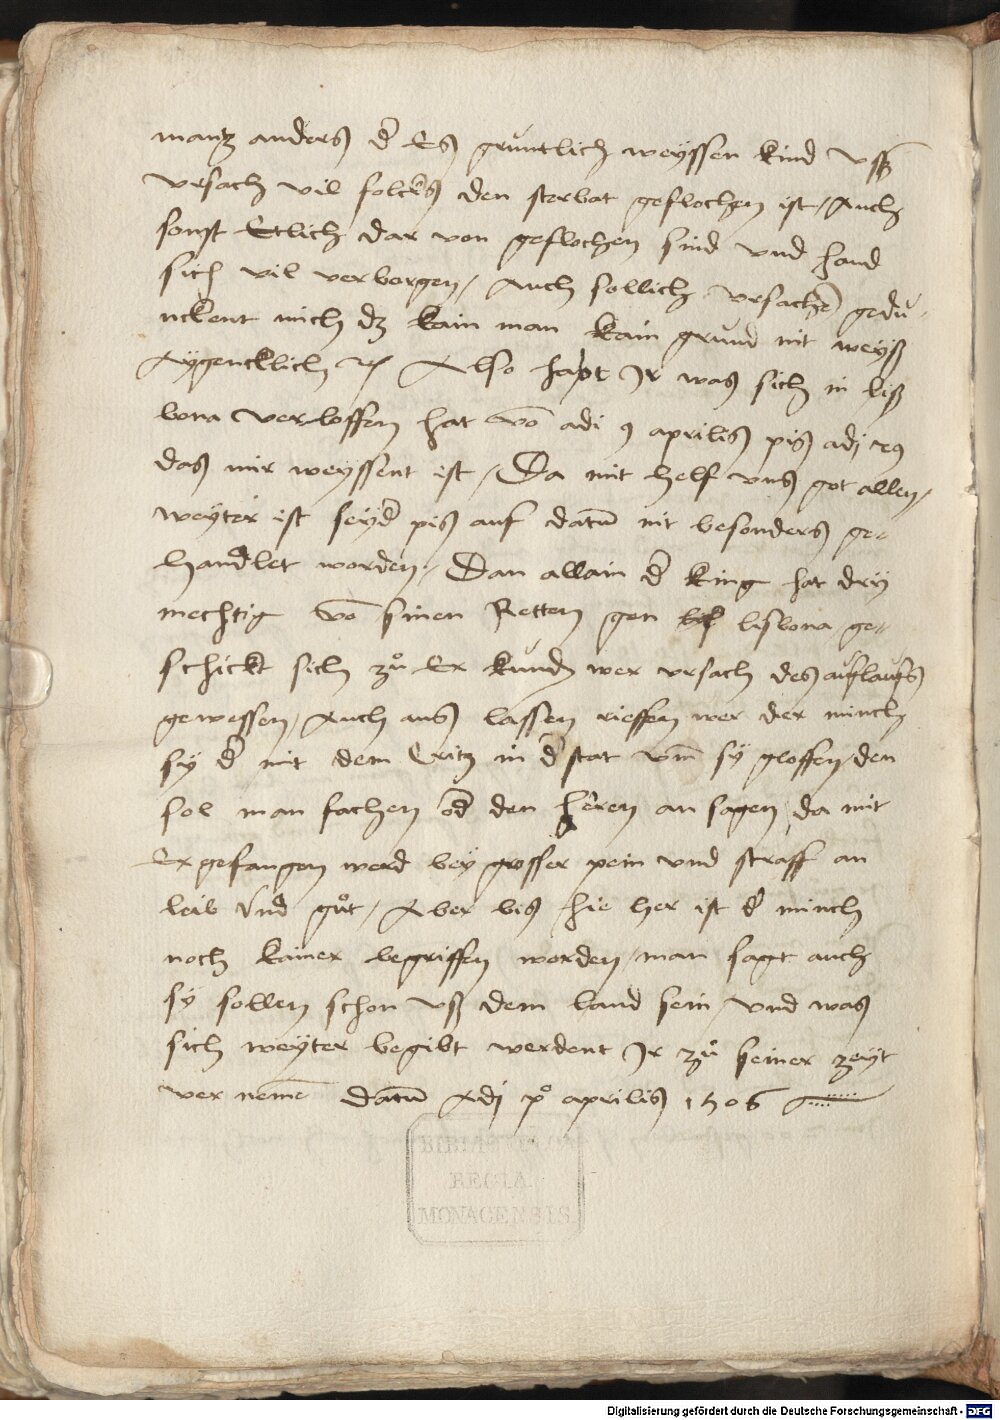 mantz anders d' Es gruntlich weyssen kind vss
vrsach vil folcks den sterbat geflochen ist / Auch
sonst Etlich dar von geflochen sind vnd hand
sich vil verborgen / Auch sollich vrsachē gedu-
nckent mich dz kain man kain grund nit weyß
Aygencklich Also hapt Ir was sich in liß
bona verloffen hat vō adi 9 aprilis piß adj 29
das mir weyssent ist / Da mit helf vns got allen /
weyter ist seyd' piß auf datū nit besonders ge-
handlet worden / Dan allain d' king hat dry
mechtig vō sinen Retten gen lisbona ge-
schickt sich zů Er kundn wer vrsach des auflaufs
gewessen / Auch aus lassen rieffen wer der minch
sy d' mit dem Critz in d' stat vm̄ sy gloffen / den
sol man fachen od' den heren an sagen da mit
Er gefangen werd bey grosser pein vnd straff an
leib Vnd gůt / Aber bis hie her ist d' minch
noch kainer begriffen worden / man sagt auch
sy sollen schon vß dem land sein / vnd was
sich weyter begibt werdent Ir zů seiner zeyt
ver nemē datū Adj po aprilis 1506
BIBLIOTHECA
REGIA
MONACENSIS
Digitalisierung gefördert durch die Deutsche Forschungsgemeinschaft - DFG